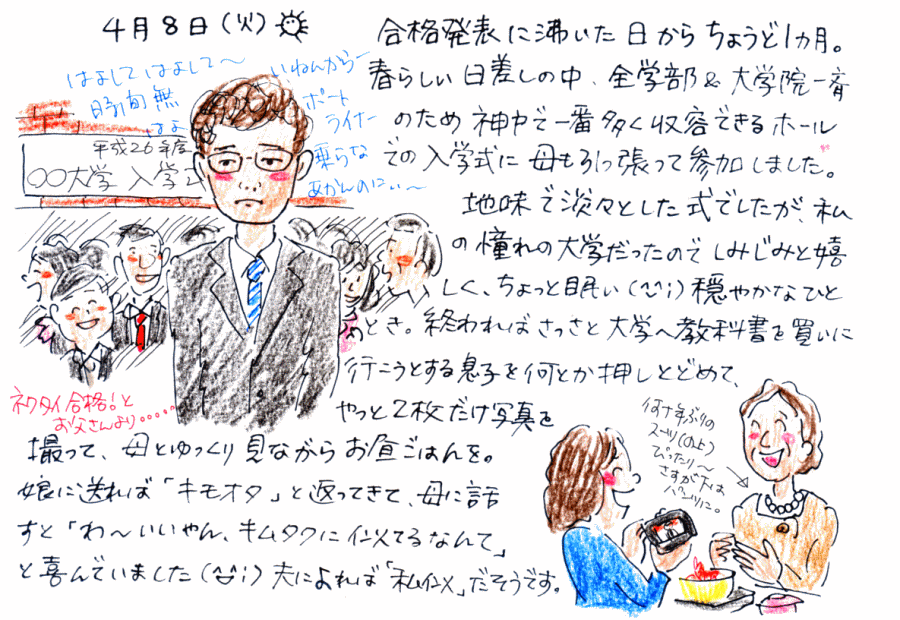 4月8日(火)
合格発表に沸いた日からちょうど1ヵ月。
春らしい日差しの中、全学部&大学院一斉
のため神戸で一番多く収容できるホール
での入学式に母も引っ張って参加しました。
地味で淡々とした式でしたが、私
の憧れの大学だったのでしみじみと嬉
しく、ちょっと眠い(^^;)穏やかなひと
とき。終わればさっさと大学へ教科書を買いに
行こうとする息子を何とか押しとどめて、
やっと2枚だけ写真を
撮って、母とゆっくり見ながらお昼ごはんを。
娘に送れば「キモオタ」と返ってきて、母に話
すと「わ〜いいやん、キムタクに似てるなんて」
と喜んでいました(^^;)夫によれば「私似」だそうです。
はよして はよして〜
時間無
はよ
いねんから〜
ポート
ライナー
乗らな
あかんのに…〜
平成26年度
〇〇大学 入学式
ネクタイ合格!と
お父さんより・・・・・
何十年ぶりの
スーツ(の上)
ぴったり〜
さすが下は
パンツに。